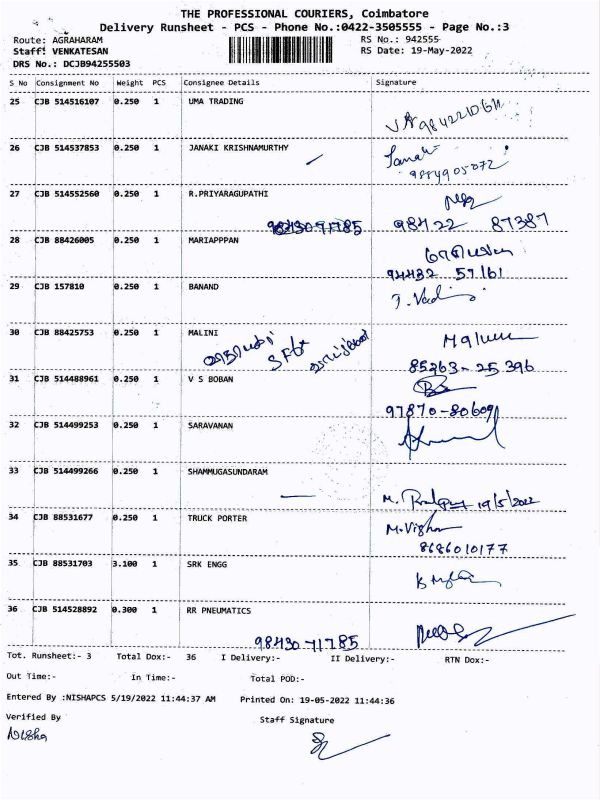 THE PROFESSIONAL COURIERS, Coimbatore
Delivery Runsheet - PCS - Phone No.:0422-3505555 - Page No.:3
Route: AGRAHARAM RS No.: 942555
Staff: VENKATESAN RS Date: 19-May-2022
DRS No.: DCJB94255503
S No Consignment No Weight PCS Consignee Details Signature
25 CJB 514516107 0.250 1 UMA TRADING
26 CJB 514537853 0.250 1 JANAKI KRISHNAMURTHY
27 CJB 514552560 0.250 1 R.PRIYARAGUPATHI
98430-71785 98422 87387
28 CJB 88426005 0.250 1 MARIAPPPAN
94432 57161
29 CJB 157810 0.250 1 BANAND
30 CJB 88425753 0.250 1 MALINI
85263-25396
31 CJB 514488961 0.250 1 V S BOBAN
97870-80609
32 CJB 514499253 0.250 1 SARAVANAN
33 CJB 514499266 0.250 1 SHAMMUGASUNDARAM
19/5/2022
34 CJB 88531677 0.250 1 TRUCK PORTER
8686010177
35 CJB 88531703 3.100 1 SRK ENGG
36 CJB 514528892 0.300 1 RR PNEUMATICS
98430-71785
Tot. Runsheet:- 3 Total Dox:- 36 I Delivery:- II Delivery:- RTN Dox:-
Out Time:- In Time:- Total POD:-
Entered By :NISHAPCS 5/19/2022 11:44:37 AM Printed On: 19-05-2022 11:44:36
Verified By Staff Signature
Nisha